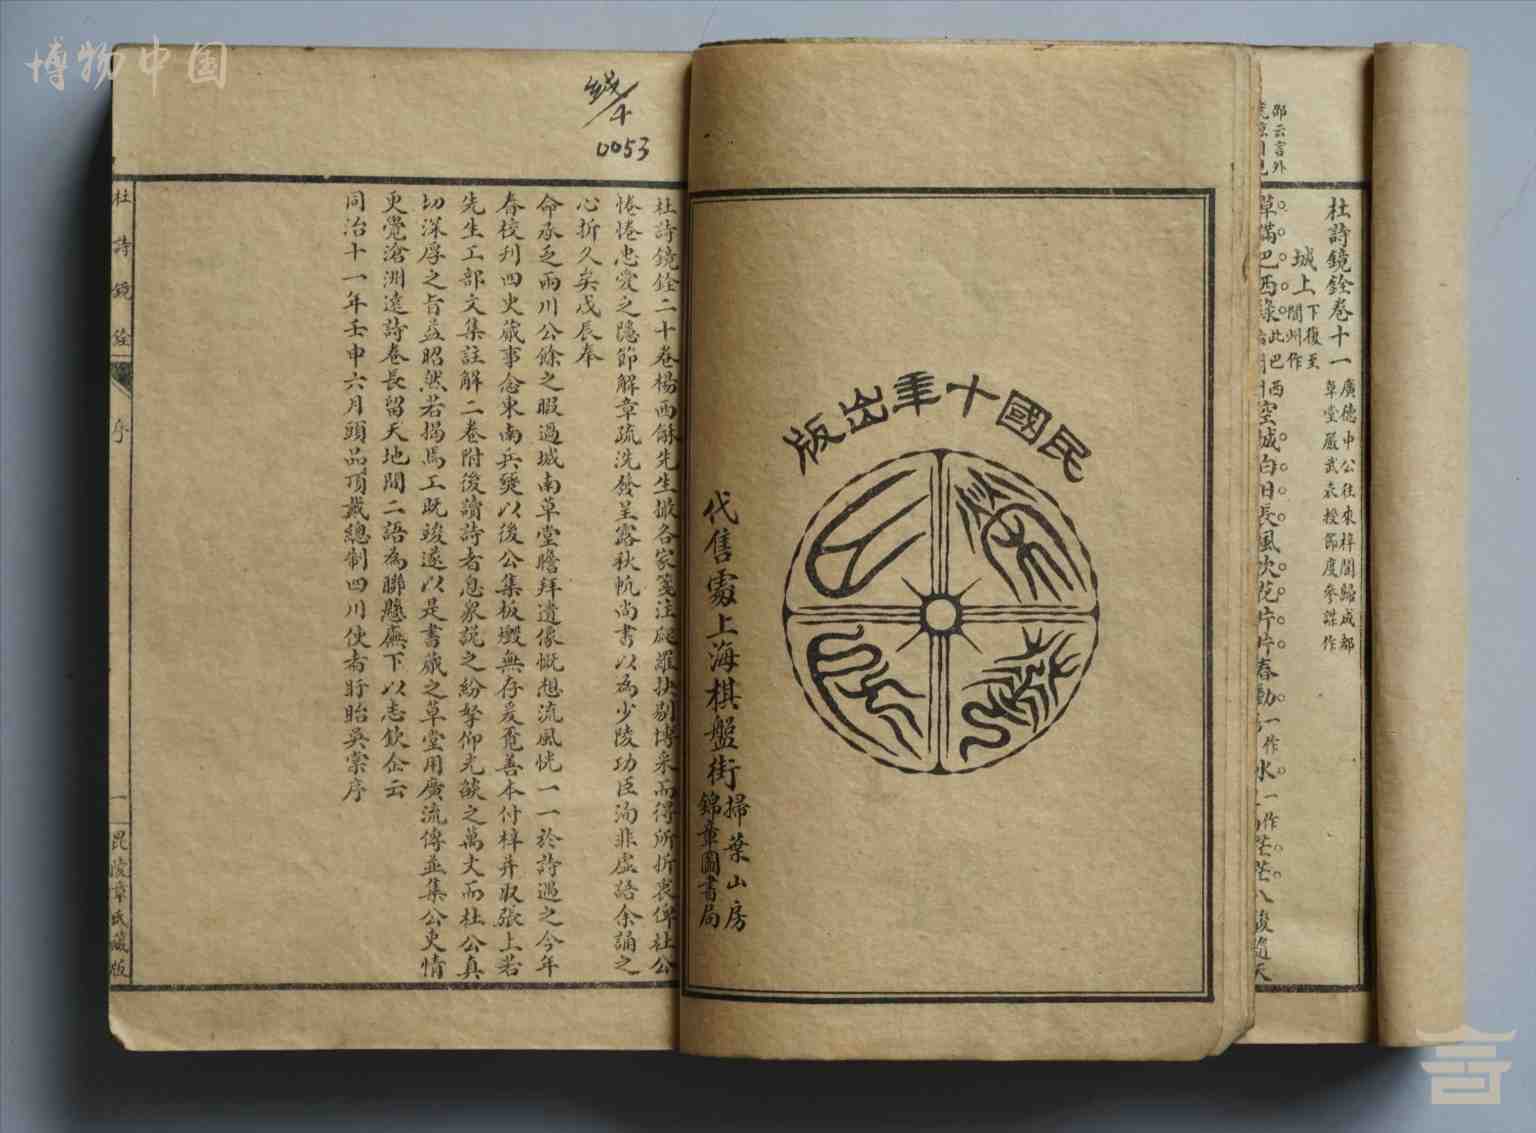 博物中国
邵云言外
杜詩鏡銓卷十一
廣德中公往來梓閬歸成都
草堂嚴武表授節度參謀作
城上
下復至
閬州作
草滿巴西綠
此巴西
空城白日長風吹花片片春動
一作
水
一作
茫茫八駿隨天
民國十年出版
代售處上海棋盤街
掃葉山房
錦章圖書局
線/十
0053
杜詩鏡銓二十卷楊西龢先生撮各家箋注爬羅抉剔博采而得所折衷俾杜公
惓惓忠愛之隱節解章疏洗發呈露秋帆尚書以為少陵功臣洵非虛語余誦之
心折久矣戊辰奉
命承乏兩川公餘之暇過城南草堂瞻拜遺像慨想流風恍一一於詩遇之今年
春校刊四史蕆事念東南兵燹以後公集板燬無存爰覓善本付梓并取張上若
先生工部文集註解二卷附後讀詩者息眾說之紛拏仰光燄之萬丈而杜公真
切深厚之旨益昭然若揭焉工既竣遂以是書蕆之草堂用廣流傳並集公吏情
更覺滄洲遠詩卷長留天地間二語為聯懸廡下以志欽企云
同治十一年壬申六月頭品頂戴總制四川使者盱眙吳棠序
杜詩鏡銓
序
一
毘陵章氏藏版